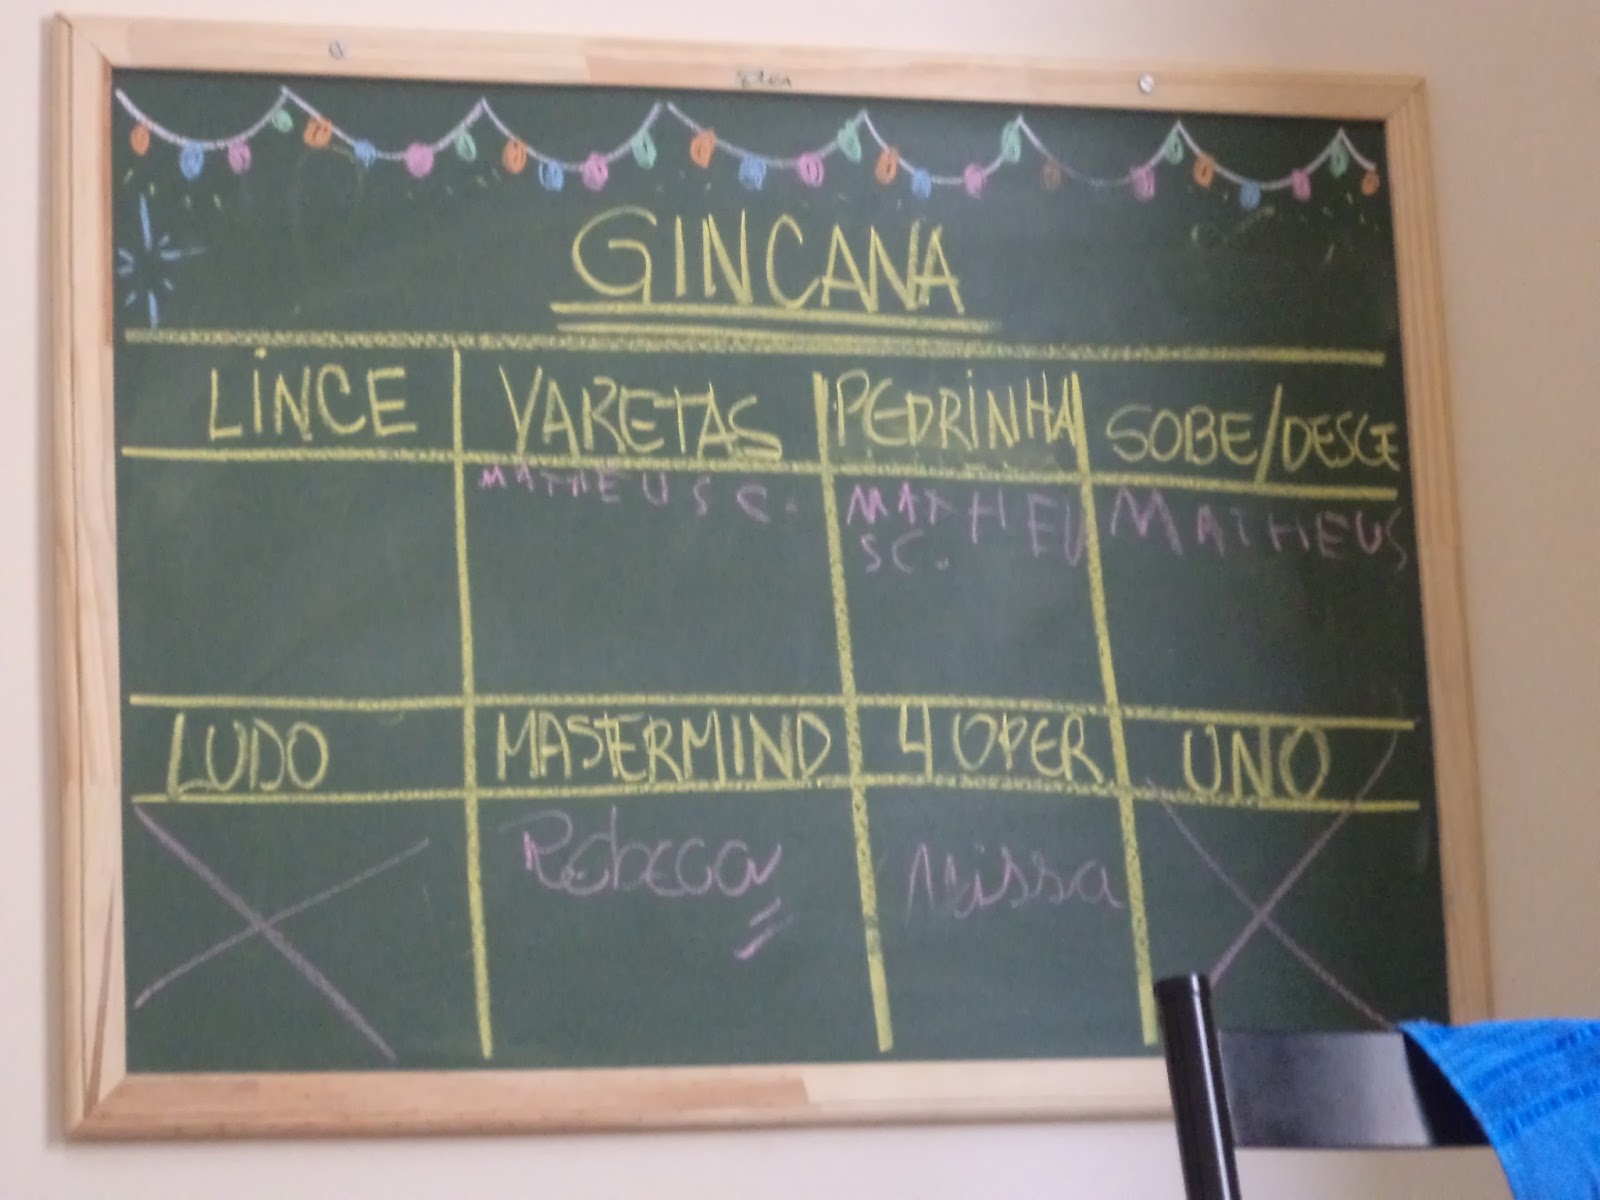 GINCANA
LINCE VARETAS PEDRINHA SOBE/DESCE
MATHEUS C. MATHEU MATHEUS
SC.
LUDO MASTERMIND 4 OPER UNO
Rebeca